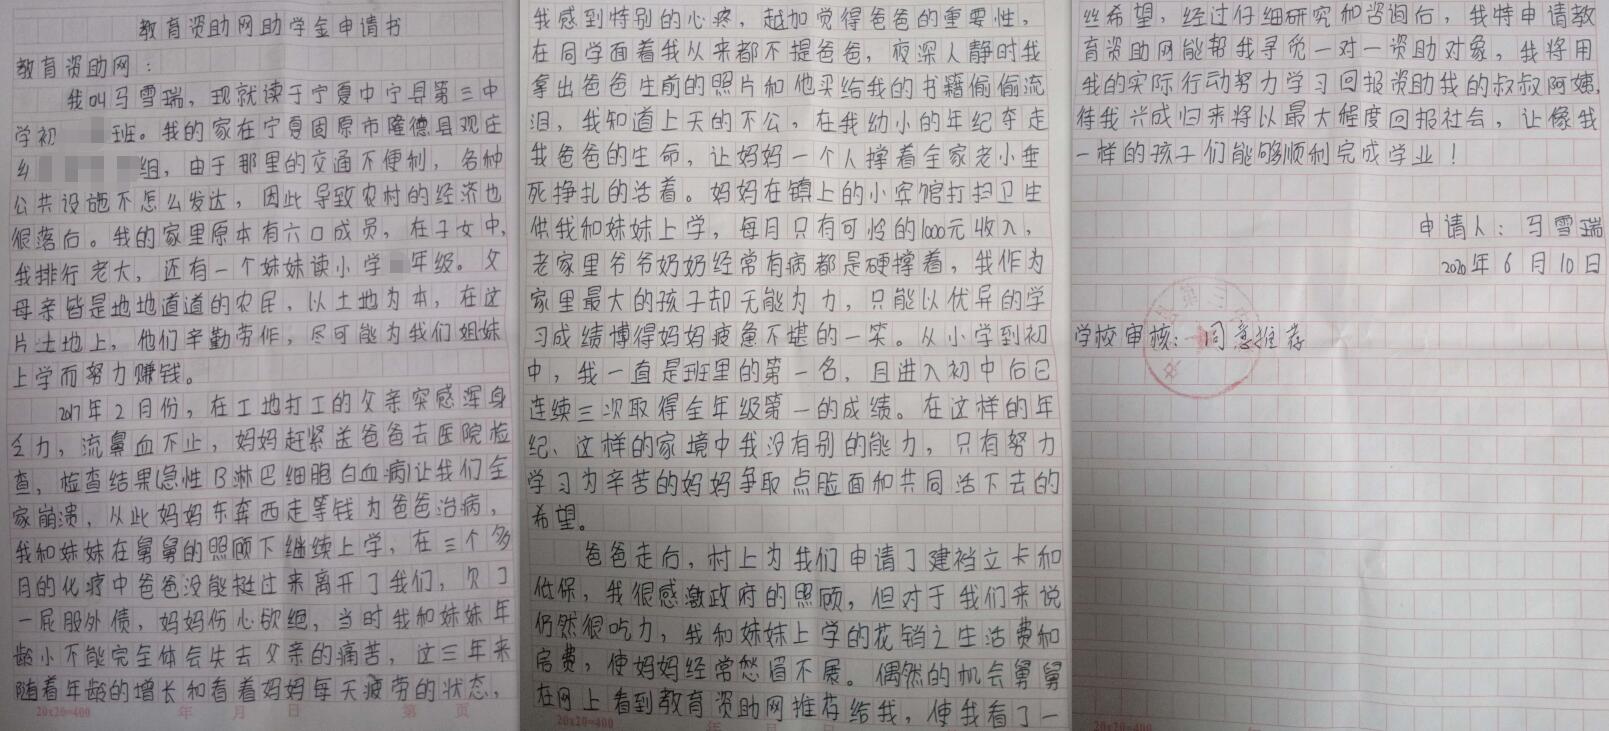 教育资助网助学金申请书
教育资助网：
我叫马雪瑞，现就读于宁夏中宁县第三中
学初班。我的家在宁夏固原市隆德县观庄
乡组，由于那里的交通不便利，各种
公共设施不怎么发达，因此导致农村的经济也
很落后。我的家里原本有六口成员，在子女中，
我排行老大，还有一个妹妹读小学年级。父
母亲皆是地地道道的农民，以土地为本，在这
片土地上，他们辛勤劳作，尽可能为我们姐妹
上学而努力赚钱。
2017年2月份，在工地打工的父亲突感浑身
乏力，流鼻血不止，妈妈赶紧送爸爸去医院检
查，检查结果(急性B淋巴细胞白血病)让我们全
家崩溃，从此妈妈东奔西走筹钱为爸爸治病，
我和妹妹在舅舅的照顾下继续上学，在三个多
月的化疗中爸爸没能挺过来离开了我们，欠了
一屁股外债，妈妈伤心欲绝，当时我和妹妹年
龄小不能完全体会失去父亲的痛苦，这三年来
随着年龄的增长和看着妈妈每天疲劳的状态，
20x20=400 年 月 日 第 页
我感到特别的心疼，越加觉得爸爸的重要性，
在同学面着我从来都不提爸爸，夜深人静时我
拿出爸爸生前的照片和他买给我的书籍偷偷流
泪，我知道上天的不公，在我幼小的年纪夺走
我爸爸的生命，让妈妈一个人撑着全家老小垂
死挣扎的活着。妈妈在镇上的小宾馆打扫卫生
供我和妹妹上学，每月只有可怜的1000元收入，
老家里爷爷奶奶经常有病都是硬撑着，我作为
家里最大的孩子却无能为力，只能以优异的学
习成绩博得妈妈疲惫不堪的一笑。从小学到初
中，我一直是班里的第一名，且进入初中后已
连续三次取得全年级第一的成绩。在这样的年
纪、这样的家境中我没有别的能力，只有努力
学习为辛苦的妈妈争取点脸面和共同活下去的
希望。
爸爸走后，村上为我们申请了建档立卡和
低保，我很感激政府的照顾，但对于我们来说
仍然很吃力，我和妹妹上学的花销之生活费和
房费，使妈妈经常愁眉不展。偶然的机会舅舅
在网上看到教育资助网推荐给我，使我看了一
20x20=400 年 月 日
丝希望，经过仔细研究和咨询后，我特申请教
育资助网能帮我寻觅一对一资助对象，我将用
我的实际行动努力学习回报资助我的叔叔阿姨，
待我兴成归来将以最大程度回报社会，让像我
一样的孩子们能够顺利完成学业！
申请人：马雪瑞
2020年6月10日
学校审核：同意推荐
20x20=400